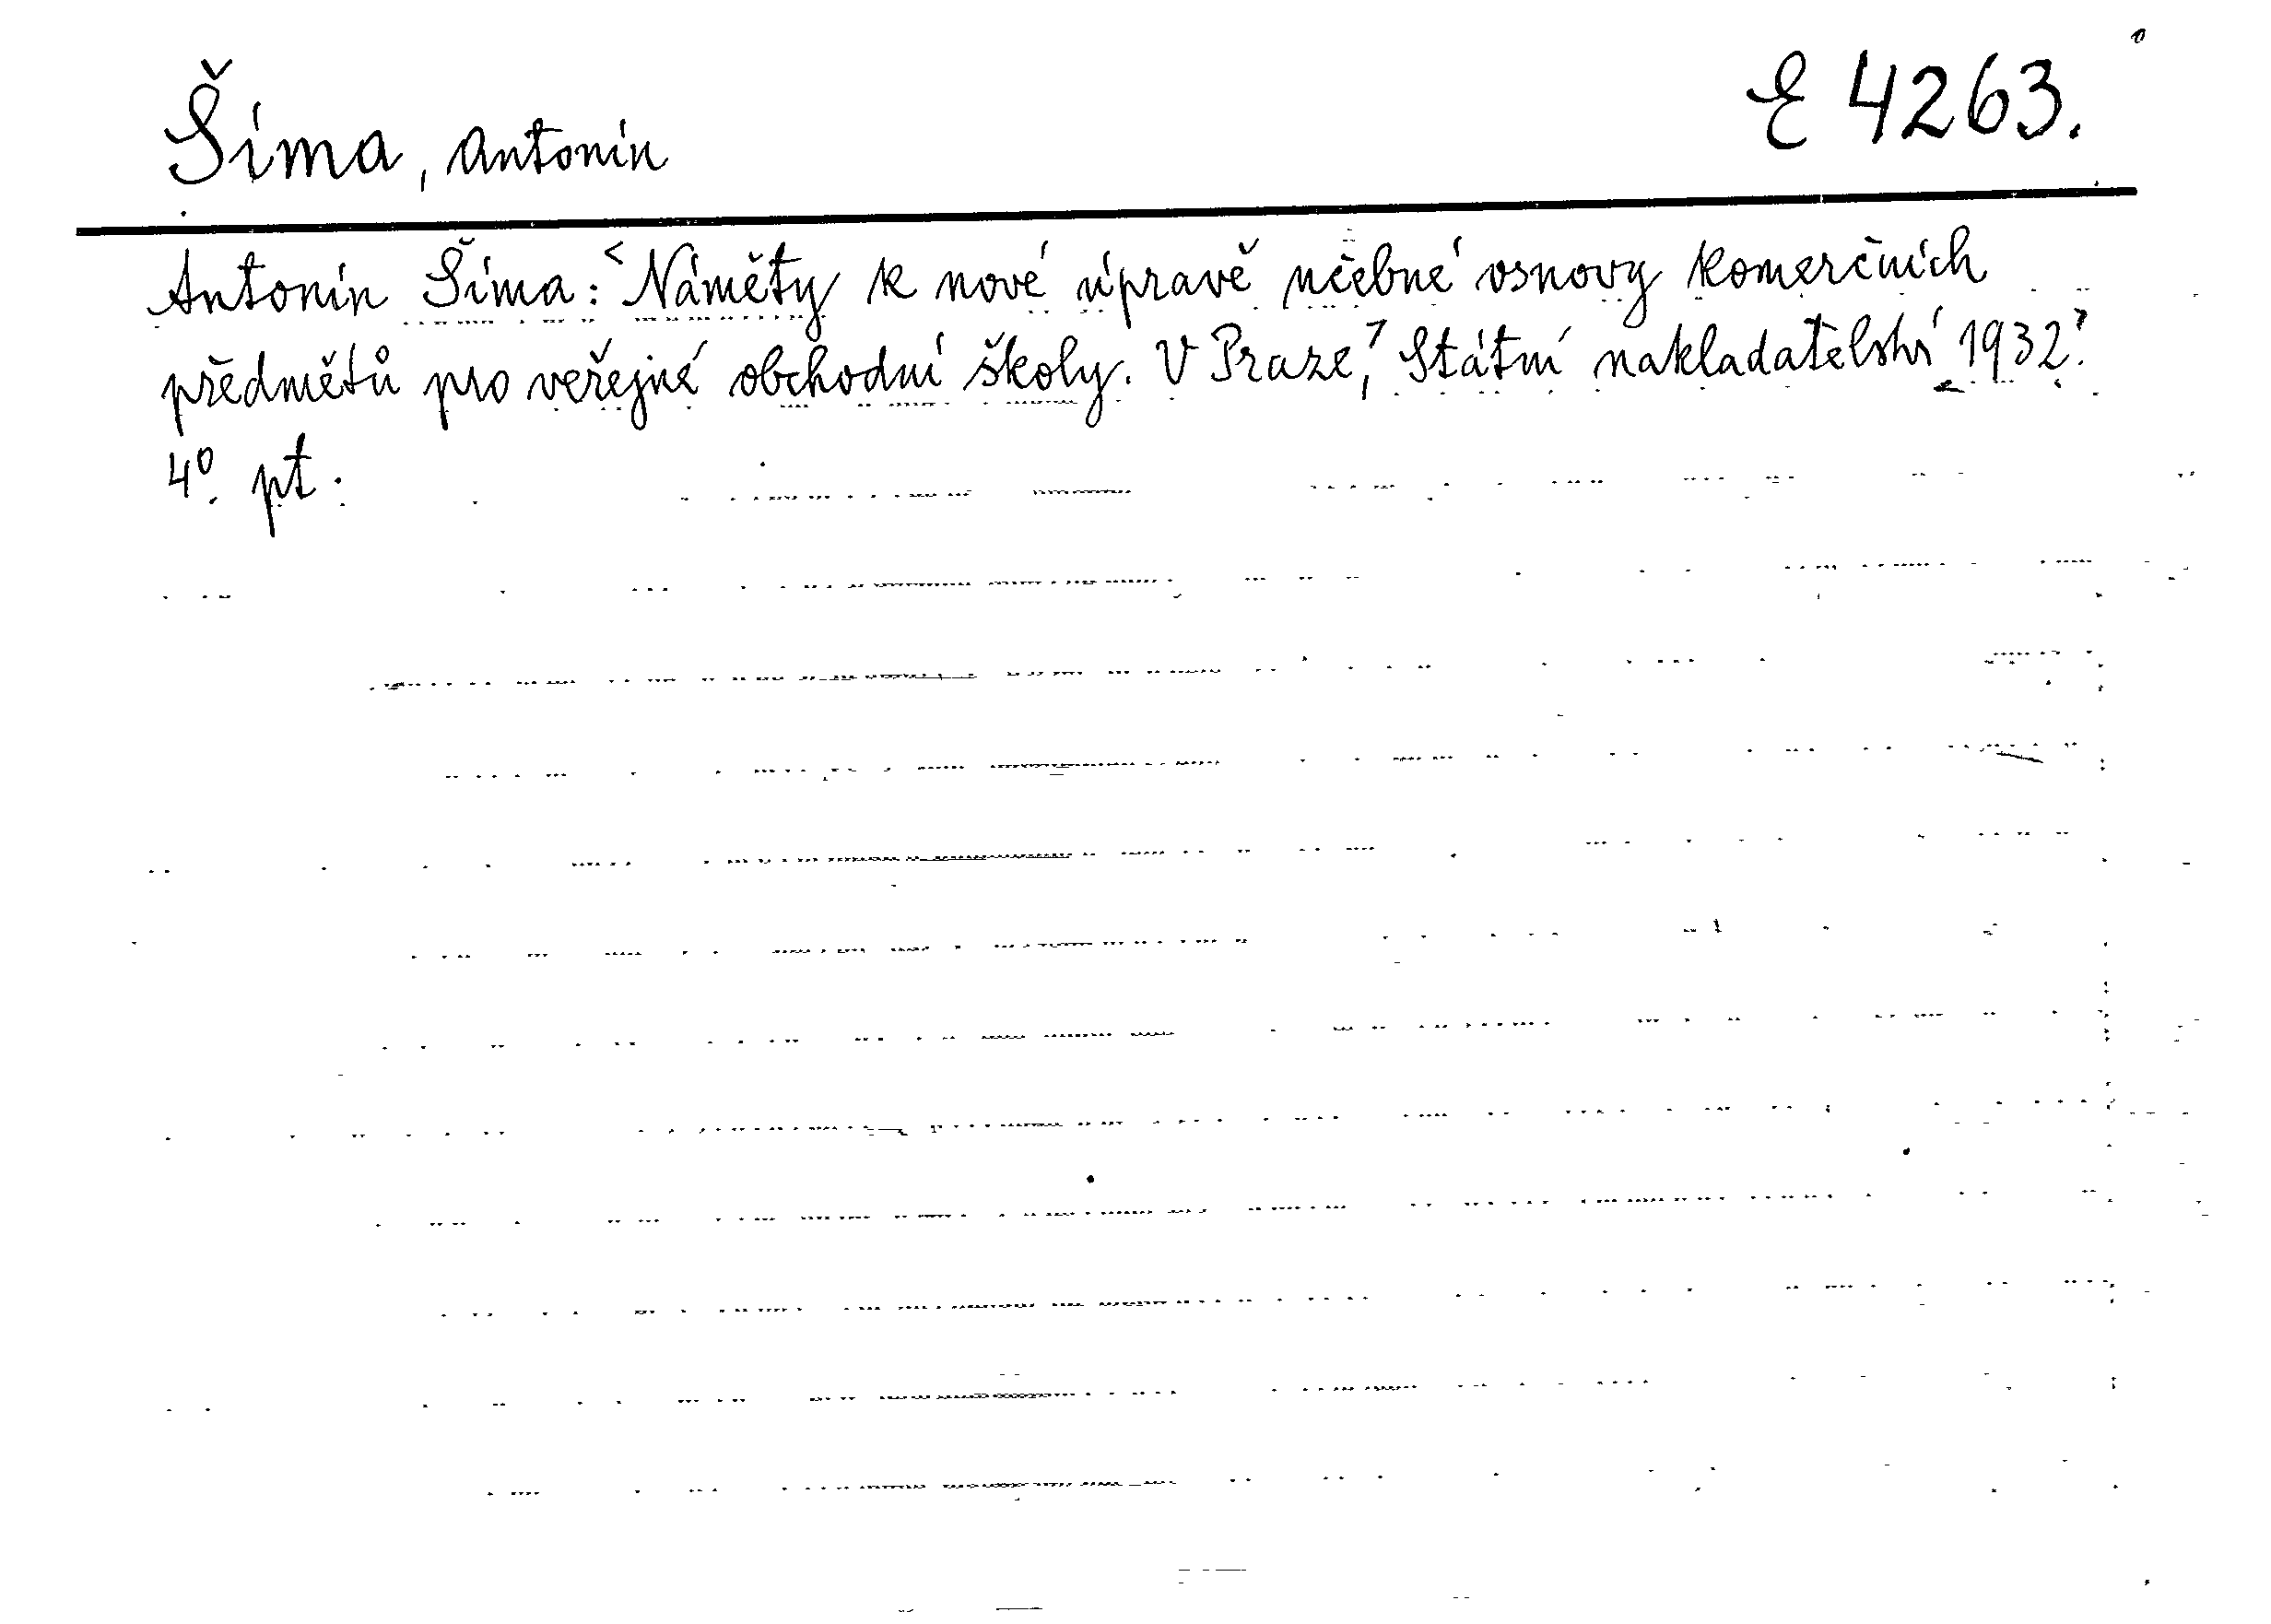 Šíma, Antonín
E 4263.
Antonín Šíma: Náměty k nové úpravě učebné osnovy komerčních
předmětů pro veřejné obchodní školy. V Praze, Státní nakladatelství 1932.
4º. pt.